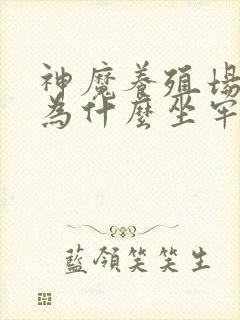 神魔養殖場
為什麼坐牢
藍領笑笑生